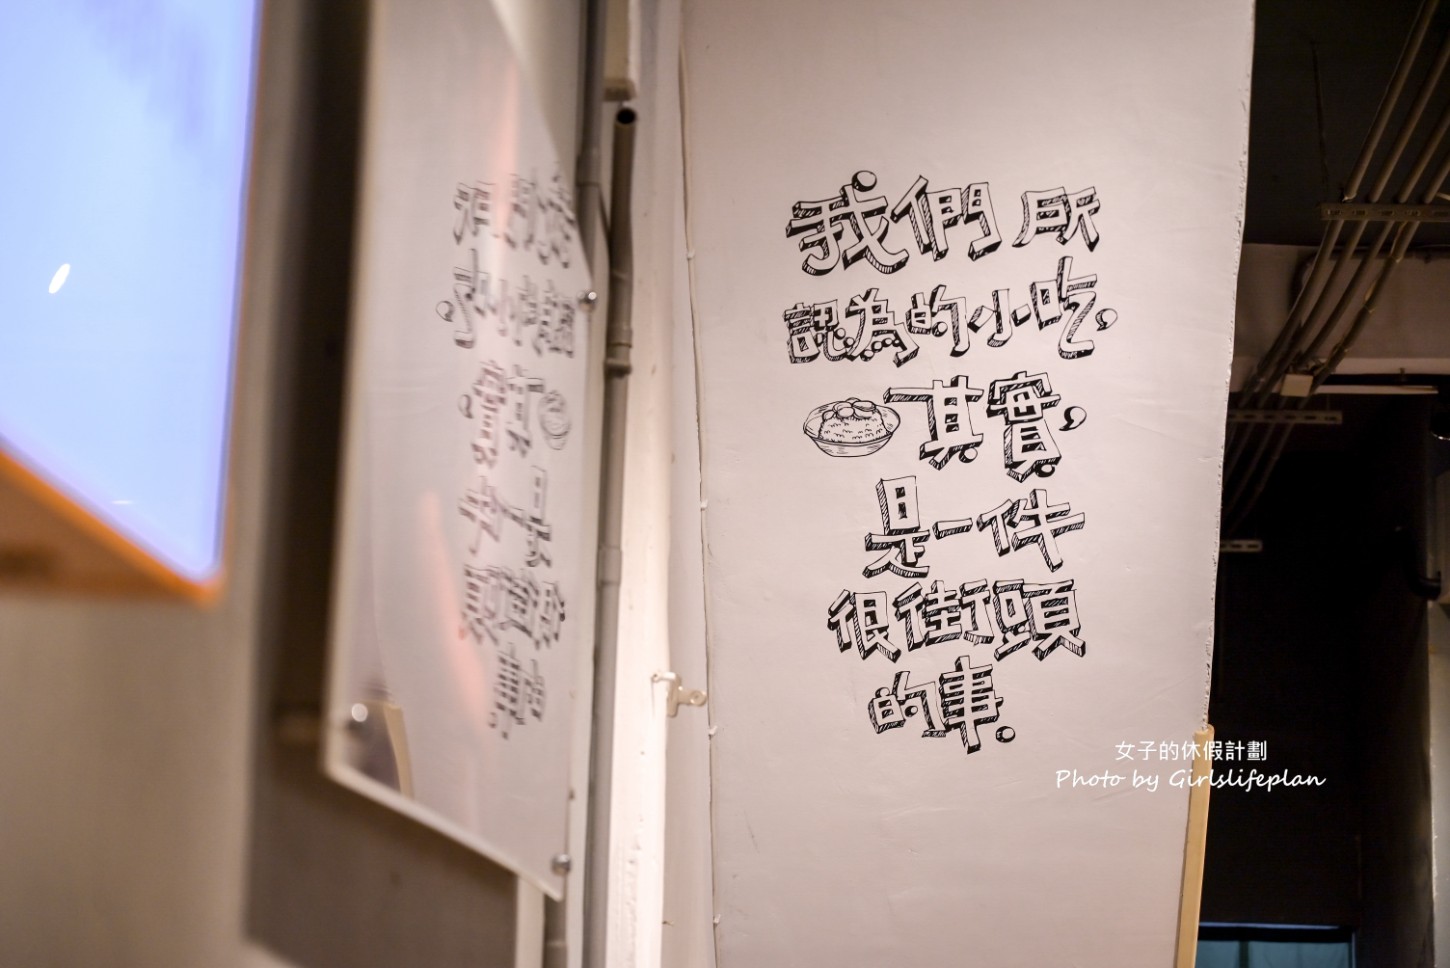 我們所
認為的小吃，
其實，
是一件
很街頭
的事。
女子的休假計劃
Photo by Girlslifeplan